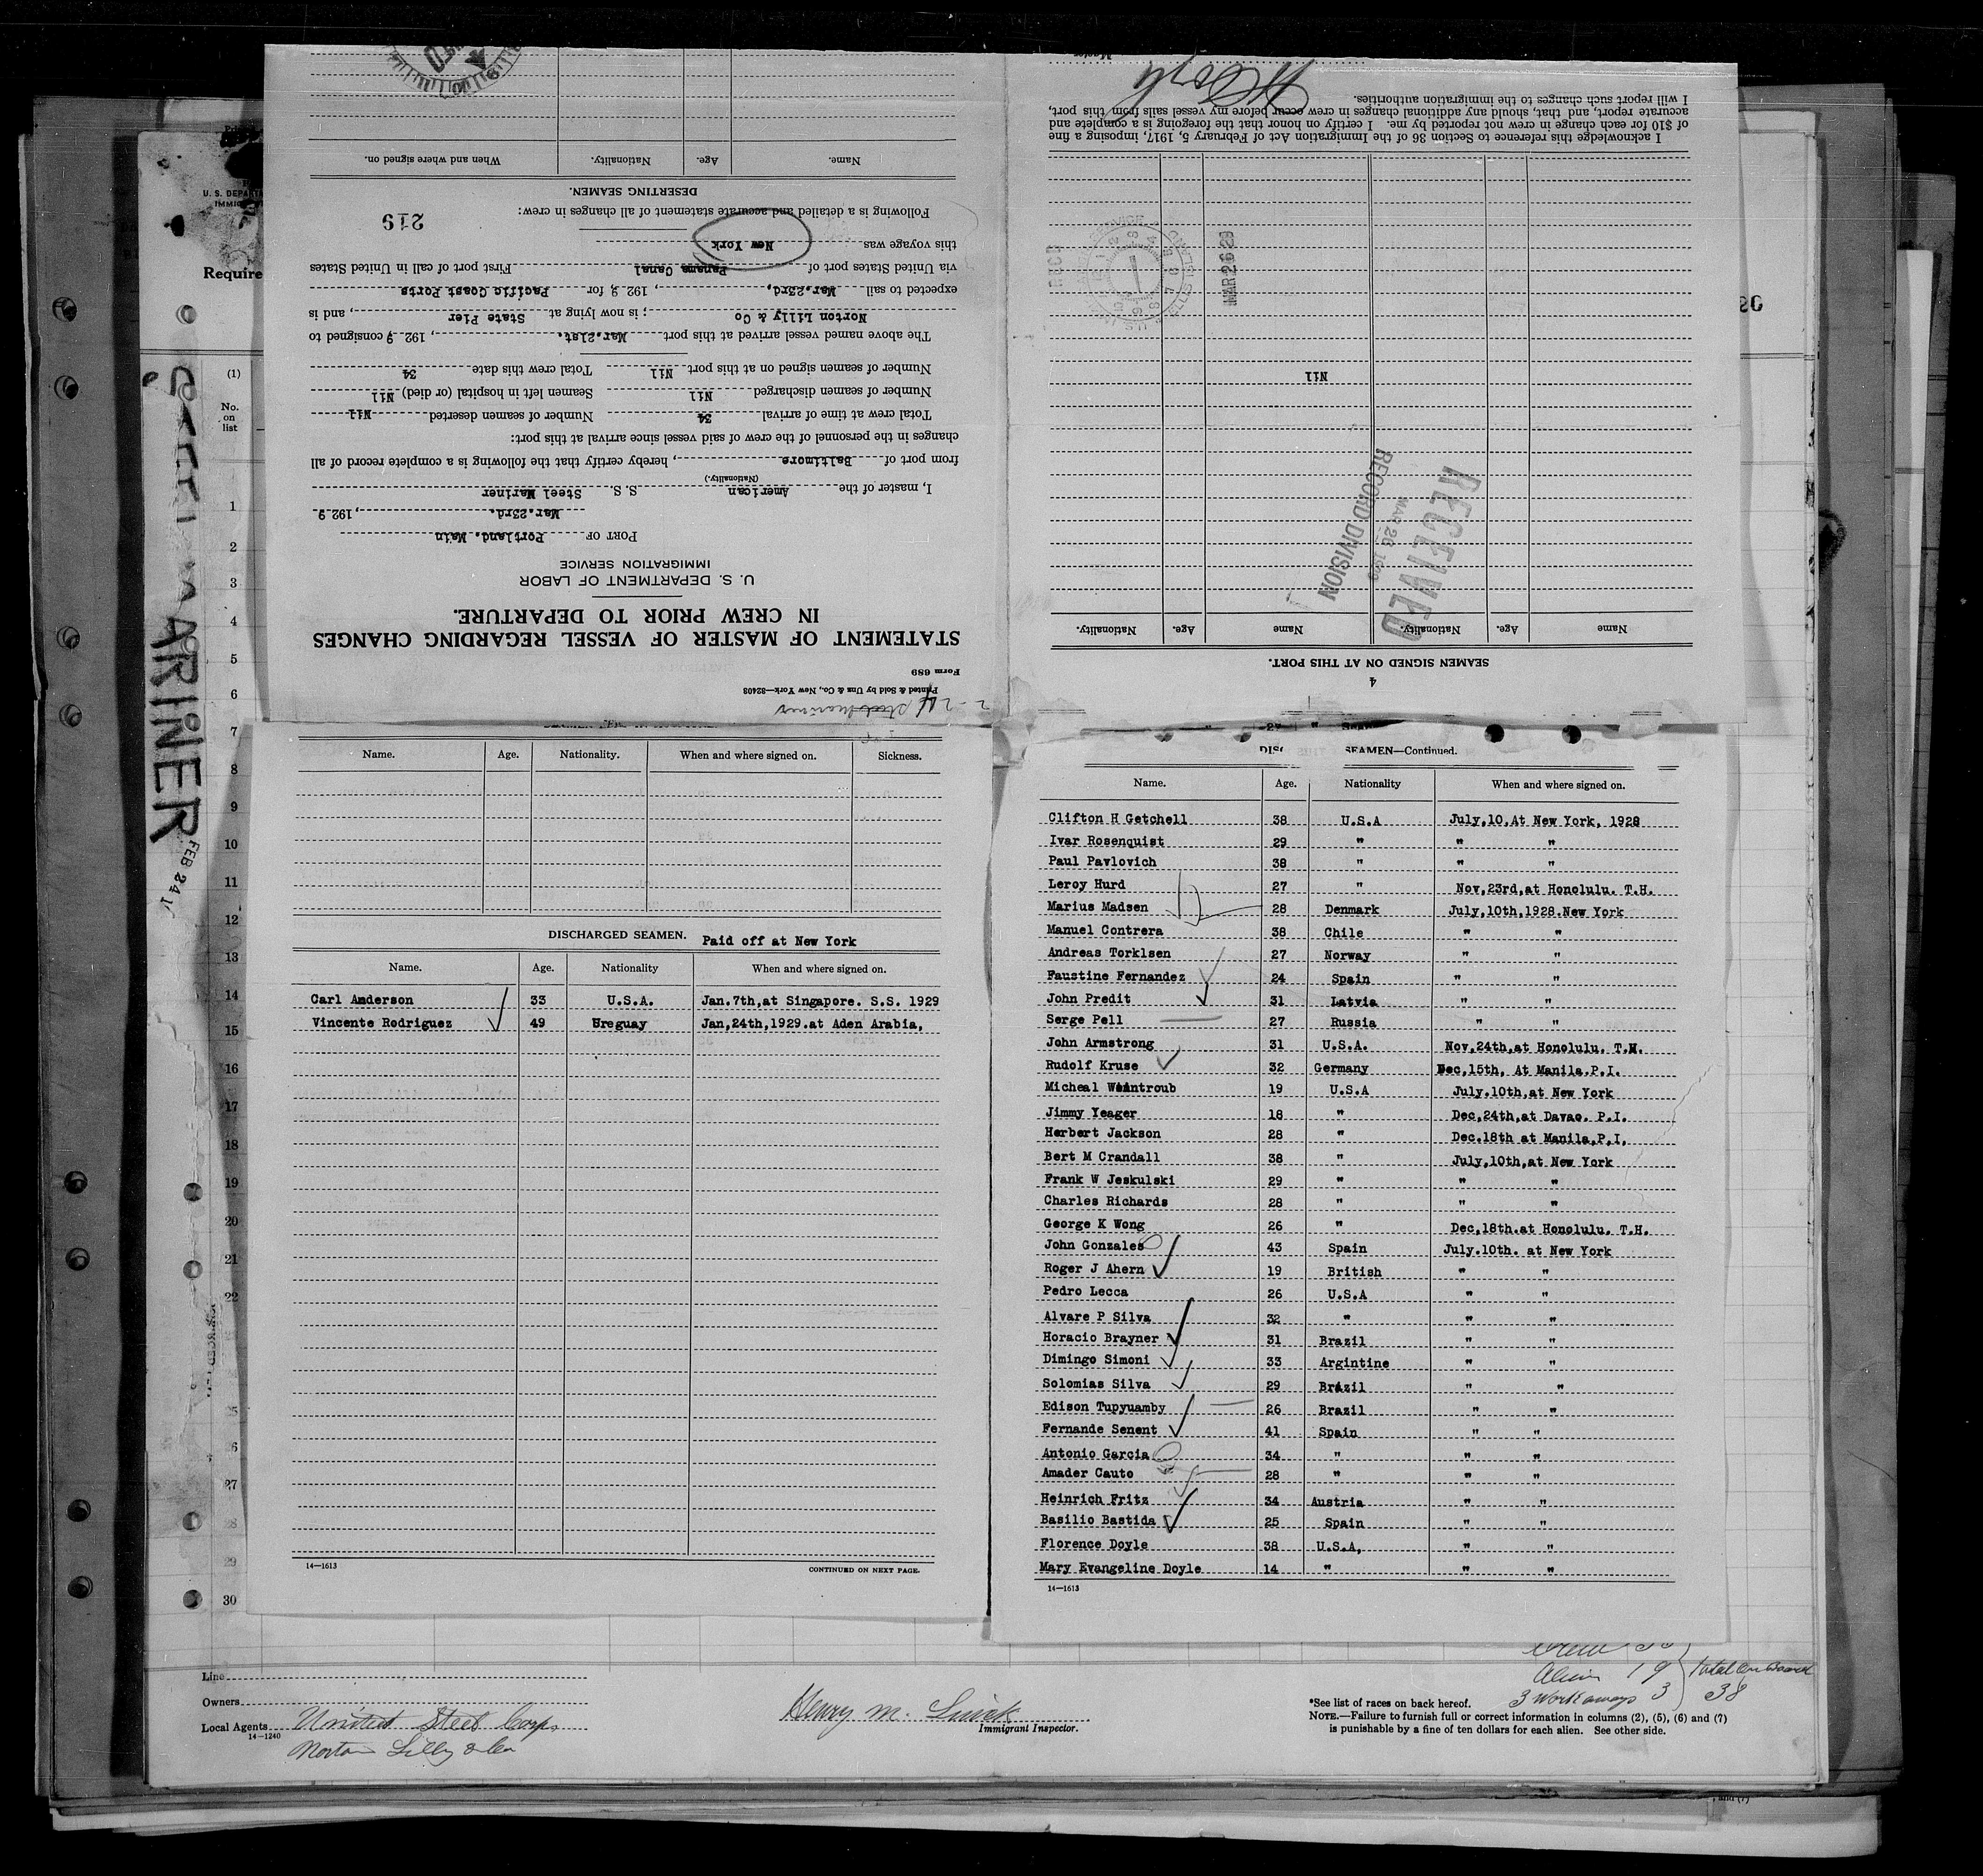 Printed & Sold by Unz & Co., New York—32408
Form 689
STATEMENT OF MASTER OF VESSEL REGARDING CHANGES
IN CREW PRIOR TO DEPARTURE.
U. S. DEPARTMENT OF LABOR
IMMIGRATION SERVICE
PORT OF Portland. Main
Mar.23rd. , 192 9
I, master of the American S. S. Steel Mariner
(Nationality.)
from port of Baltimore , hereby certify that the following is a complete record of all
changes in the personnel of the crew of said vessel since arrival at this port:
Total crew at time of arrival 34 Number of seamen deserted Nil
Number of seamen discharged Nil Seamen left in hospital (or died) Nil
Number of seamen signed on at this port Nil Total crew this date 34
The above named vessel arrived at this port Mar.21st. , 192 9 consigned to
Norton Lilly & Co ; is now lying at State Pier , and is
expected to sail Mar.23rd, , 192 9 for Pacific Coast Ports
via United States port of Panama Canal First port of call in United States
this voyage was New York
Following is a detailed and accurate statement of all changes in crew:
219
DESERTING SEAMEN.
Name. Age. Nationality. When and where signed on.
4
SEAMEN SIGNED ON AT THIS PORT.
Name Age. Nationality. Name Age. Nationality.
RECEIVED
MAR 26 1929
RECORD DIVISION
Nil
MAR 26 29
REC'D
I acknowledge this reference to Section 36 of the Immigration Act of February 5, 1917, imposing a fine
of $10 for each change in crew not reported by me. I certify on honor that the foregoing is a complete and
accurate report, and that, should any additional changes in crew occur before my vessel sails from this port,
I will report such changes to the immigration authorities.
Master
U. S. DEPARTM
IMMIG
Require
(1)
No.
on
list
1
2
3
4
5
6
7
8
9
10
11
12
13
14
15
16
17
18
19
20
21
22
25
26
27
28
29
30
ARINER
FEB 24
Name. Age. Nationality. When and where signed on. Sickness.
DISCHARGED SEAMEN. Paid off at New York
Name. Age. Nationality When and where signed on.
Carl Anderson 33 U.S.A. Jan.7th,at Singapore. S.S. 1929
Vincente Rodriguez 49 Ureguay Jan,24th,1929.at Aden Arabia,
14—1613 CONTINUED ON NEXT PAGE.
SEAMEN—Continued.
Name. Age. Nationality When and where signed on.
Clifton H Getchell 38 U.S.A July,10,At New York, 1928
Ivar Rosenquist 29 " " "
Paul Pavlovich 38 " " "
Leroy Hurd 27 " Nov,23rd,at Honolulu. T.H.
Marius Madsen 28 Denmark July,10th,1928.New York
Manuel Contrera 38 Chile " "
Andreas Torklsen 27 Norway " "
Faustine Fernandez 24 Spain " "
John Predit 31 Latvia " "
Serge Pell 27 Russia " "
John Armstrong 31 U.S.A. Nov,24th,at Honolulu. T.H.
Rudolf Kruse 32 Germany Dec,15th, At Manila.P.I.
Micheal Weintroub 19 U.S.A July.10th,at New York
Jimmy Yeager 18 " Dec,24th,at Davao. P.I.
Herbert Jackson 28 " Dec.18th at Manila,P.I,
Bert M Crandall 38 " July,10th,at New York
Frank W Jeskulski 29 " " "
Charles Richards 28 " " "
George K Wong 26 " Dec,18th.at Honolulu. T.H.
John Gonzales 43 Spain July.10th. at New York
Roger J Ahern 19 British " "
Pedro Lecca 26 U.S.A " "
Alvare P Silva 32 " " "
Horacio Brayner 31 Brazil " "
Dimingo Simoni 33 Argintine " "
Solomias Silva 29 Brazil " "
Edison Tupyuamby 26 Brazil " "
Fernande Senent 41 Spain " "
Antonio Garcia 34 " " "
Amader Cauto 28 " " "
Heinrich Fritz 34 Austria " "
Basilio Bastida 25 Spain " "
Florence Doyle 38 U.S.A, " "
Mary Evangeline Doyle 14 " " "
14—1613
Line
Owners
Local Agents United Steel Corps
14—1240
Norton Lilly & Co
Henry M.
Immigrant Inspector.
Alien 19
3 Workaways 3
Total on Board
38
*See list of races on back hereof.
NOTE.—Failure to furnish full or correct information in columns (2), (5), (6) and (7)
is punishable by a fine of ten dollars for each alien. See other side.
, and (7)